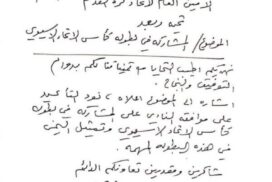 الامين العام لاتحاد كرة القدم
تحية وبعد
الموضوع / المشاركة في بطولة كأس الاتحاد الاسيوي
نهديكم اطيب التحايا مع تمنياتنا لكم بدوام
التوفيق والنجاح
اشارة الى الموضوع اعلاه، نود التأكيد
على موافقة النادي على المشاركة في بطولة
كأس الاتحاد الاسيوي وتمثيل اليمن
في هذه البطولة المهمة.
شاكرين ومقدرين تعاونكم الدائم